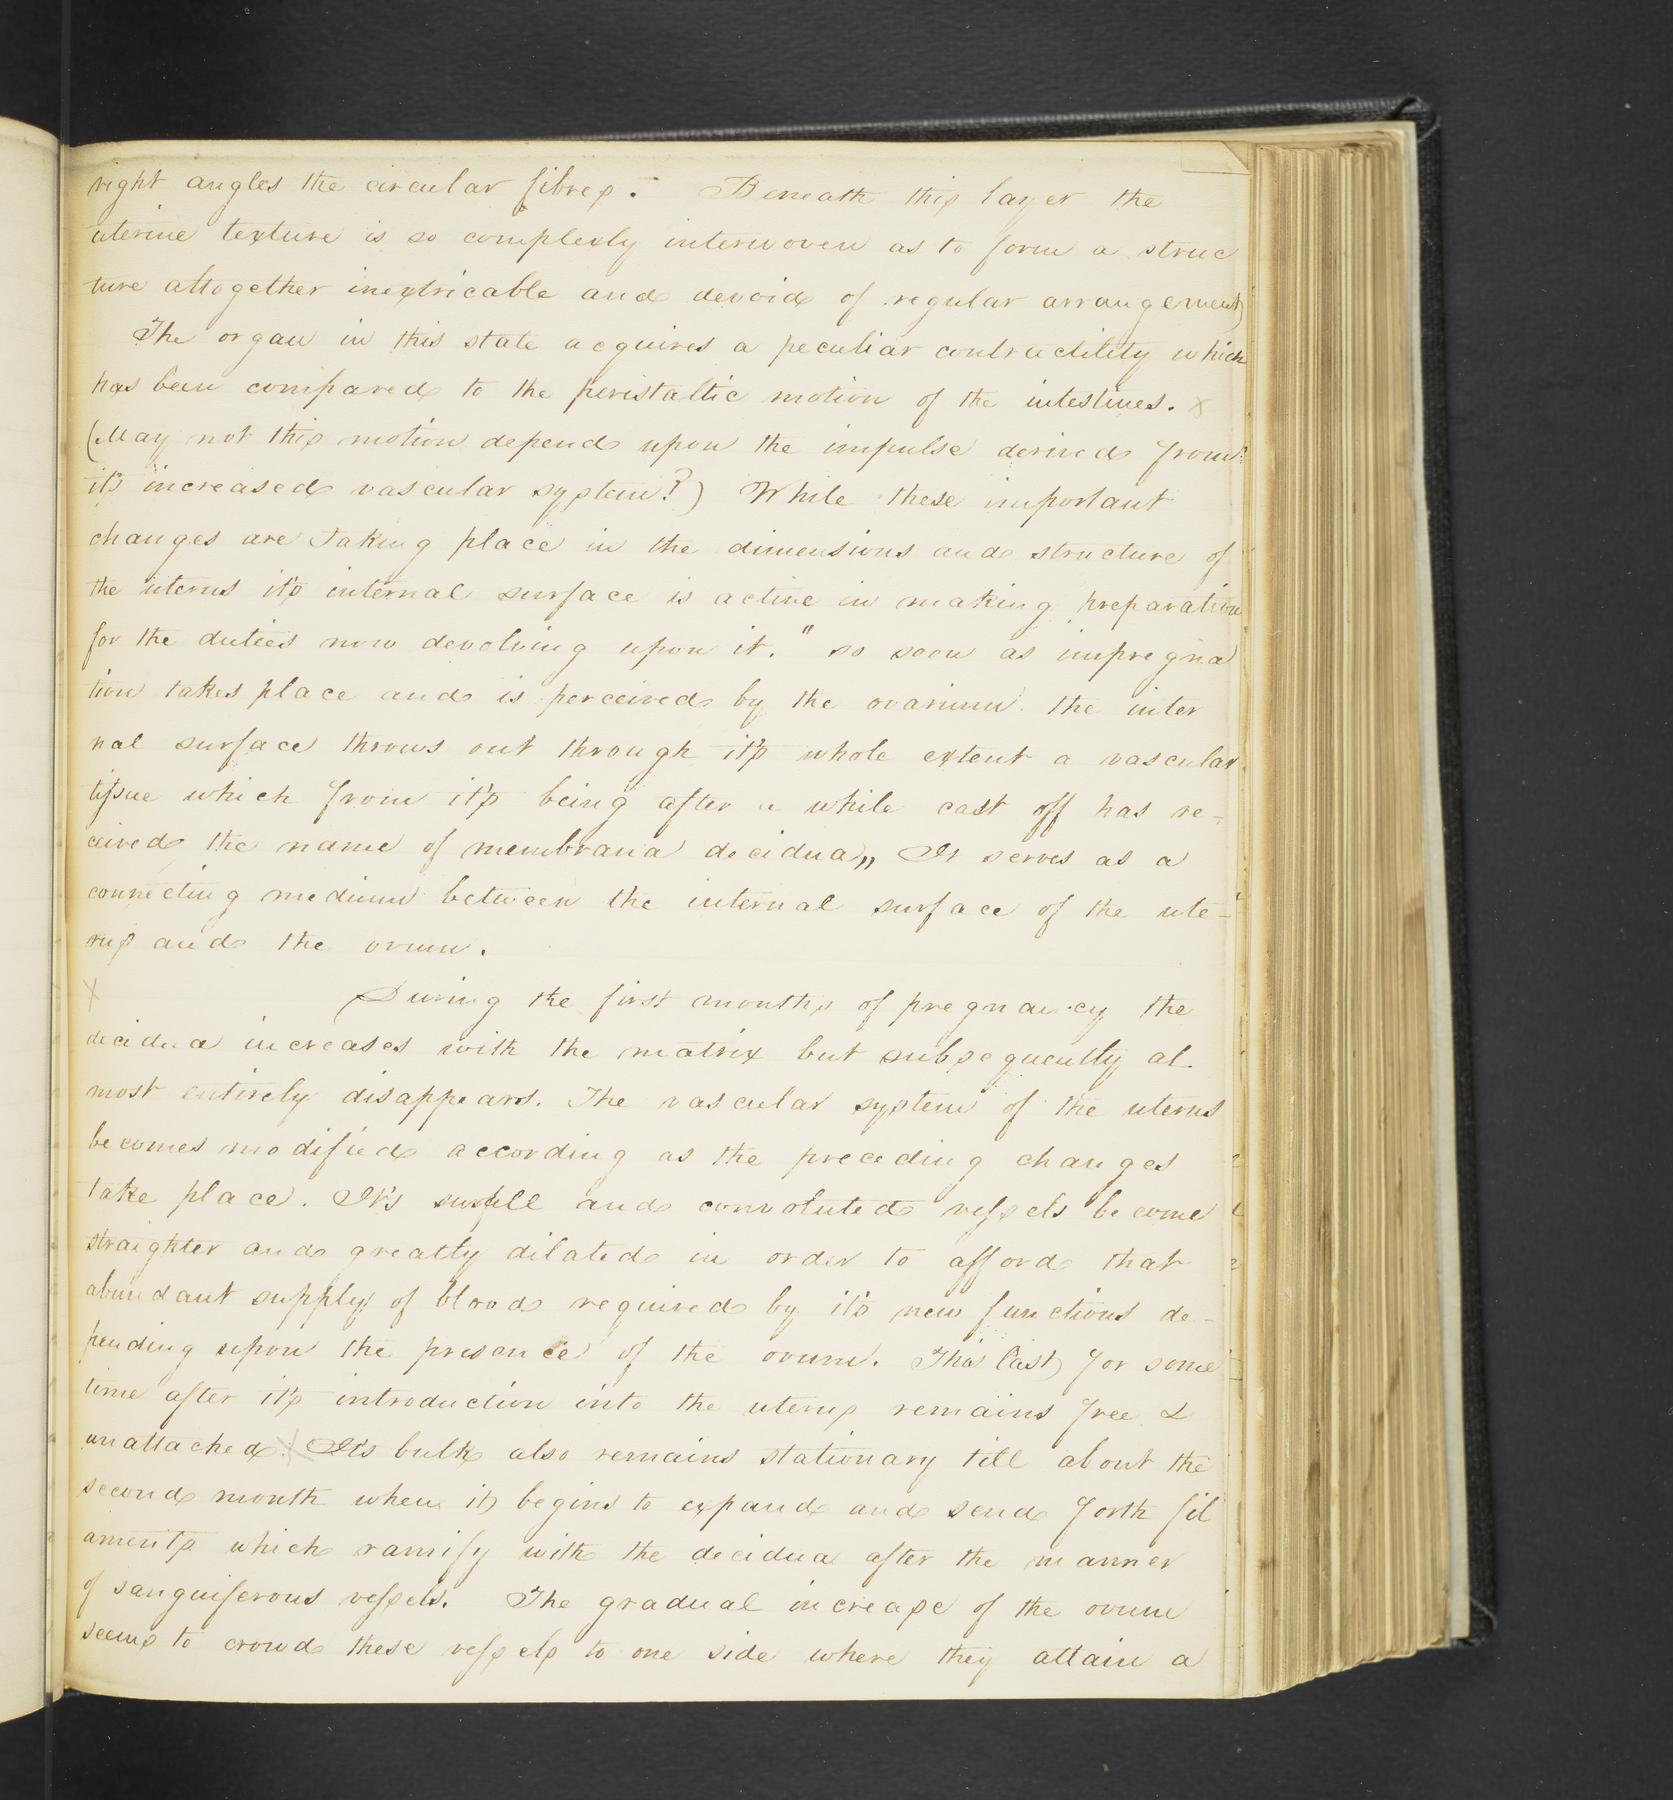 right angles the circular fibres. Beneath this layer the
uterine texture is so complexly interwoven as to form a struc
ture altogether inextricable and devoid of regular arrangement
The organ in this state acquires a peculiar contractility which
has been compared to the peristaltic motion of the intestines. x
(May not this motion depend upon the impulse derived from
it's increased vascular system?) While these important
changes are taking place in the dimensions and structure of
the uterus it's internal surface is active in making preparation
for the duties now devolving upon it. " so soon as impregna
tion takes place and is perceived by the ovarium the inter
nal surface throws out through it's whole extent a vascular
tissue which from it's being after a while cast off has re-
ceived the name of membrana decidua„ It serves as a
connecting medium between the internal surface of the ute-
rus and the ovum.
x During the first months of pregnancy the
decidua increases with the matrix but subsequently al-
most entirely disappears. The vascular system of the uterus
becomes modified according as the preceding changes
take place. It's small and convoluted vessels become
straighter and greatly dilated in order to afford that
abundant supply of blood required by it's new functions de-
pending upon the presence of the ovum. This last for some
time after it's introduction into the uterus remains free &
unattached. x It's bulk also remains stationary till about the
second month when it begins to expand and send forth fil
aments which ramify with the decidua after the manner
of sanguiferous vessels. The gradual increase of the ovum
seems to crowd these vessels to one side where they attain a